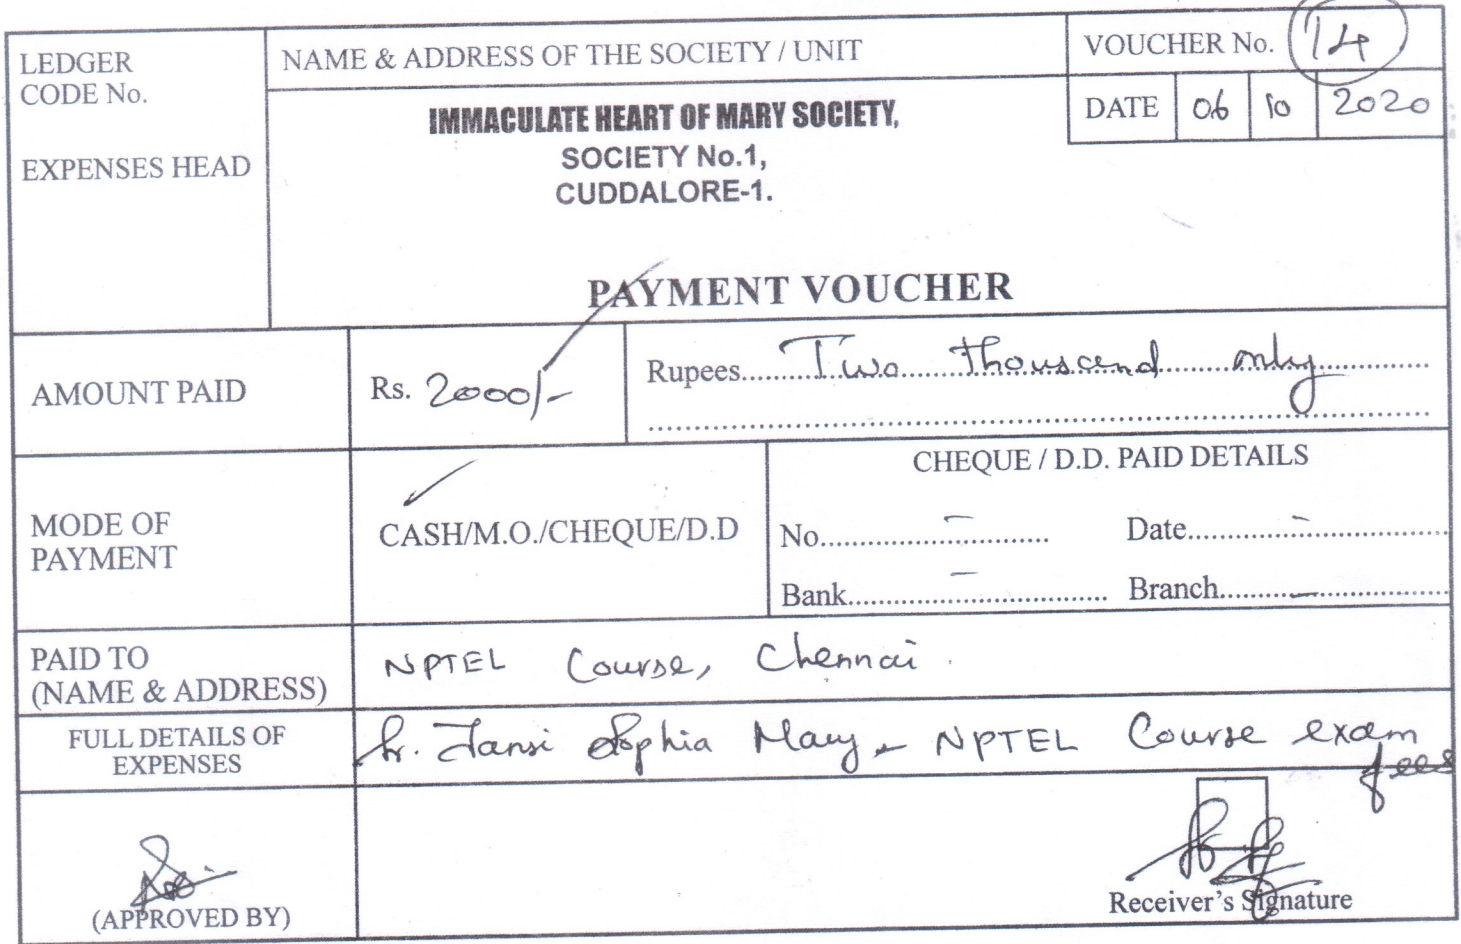 LEDGER
CODE No.
EXPENSES HEAD
NAME & ADDRESS OF THE SOCIETY / UNIT
IMMACULATE HEART OF MARY SOCIETY,
SOCIETY No.1,
CUDDALORE-1.
VOUCHER No. 14
DATE 06 10 2020
PAYMENT VOUCHER
AMOUNT PAID
Rs. 2000/-
Rupees Two thousand only
MODE OF
PAYMENT
CASH/M.O./CHEQUE/D.D
CHEQUE / D.D. PAID DETAILS
No. - Date -
Bank - Branch -
PAID TO
(NAME & ADDRESS)
NPTEL Course, Chennai.
FULL DETAILS OF
EXPENSES
Sr. Jansi Sophia Mary - NPTEL Course exam
fees
(APPROVED BY)
Receiver's Signature